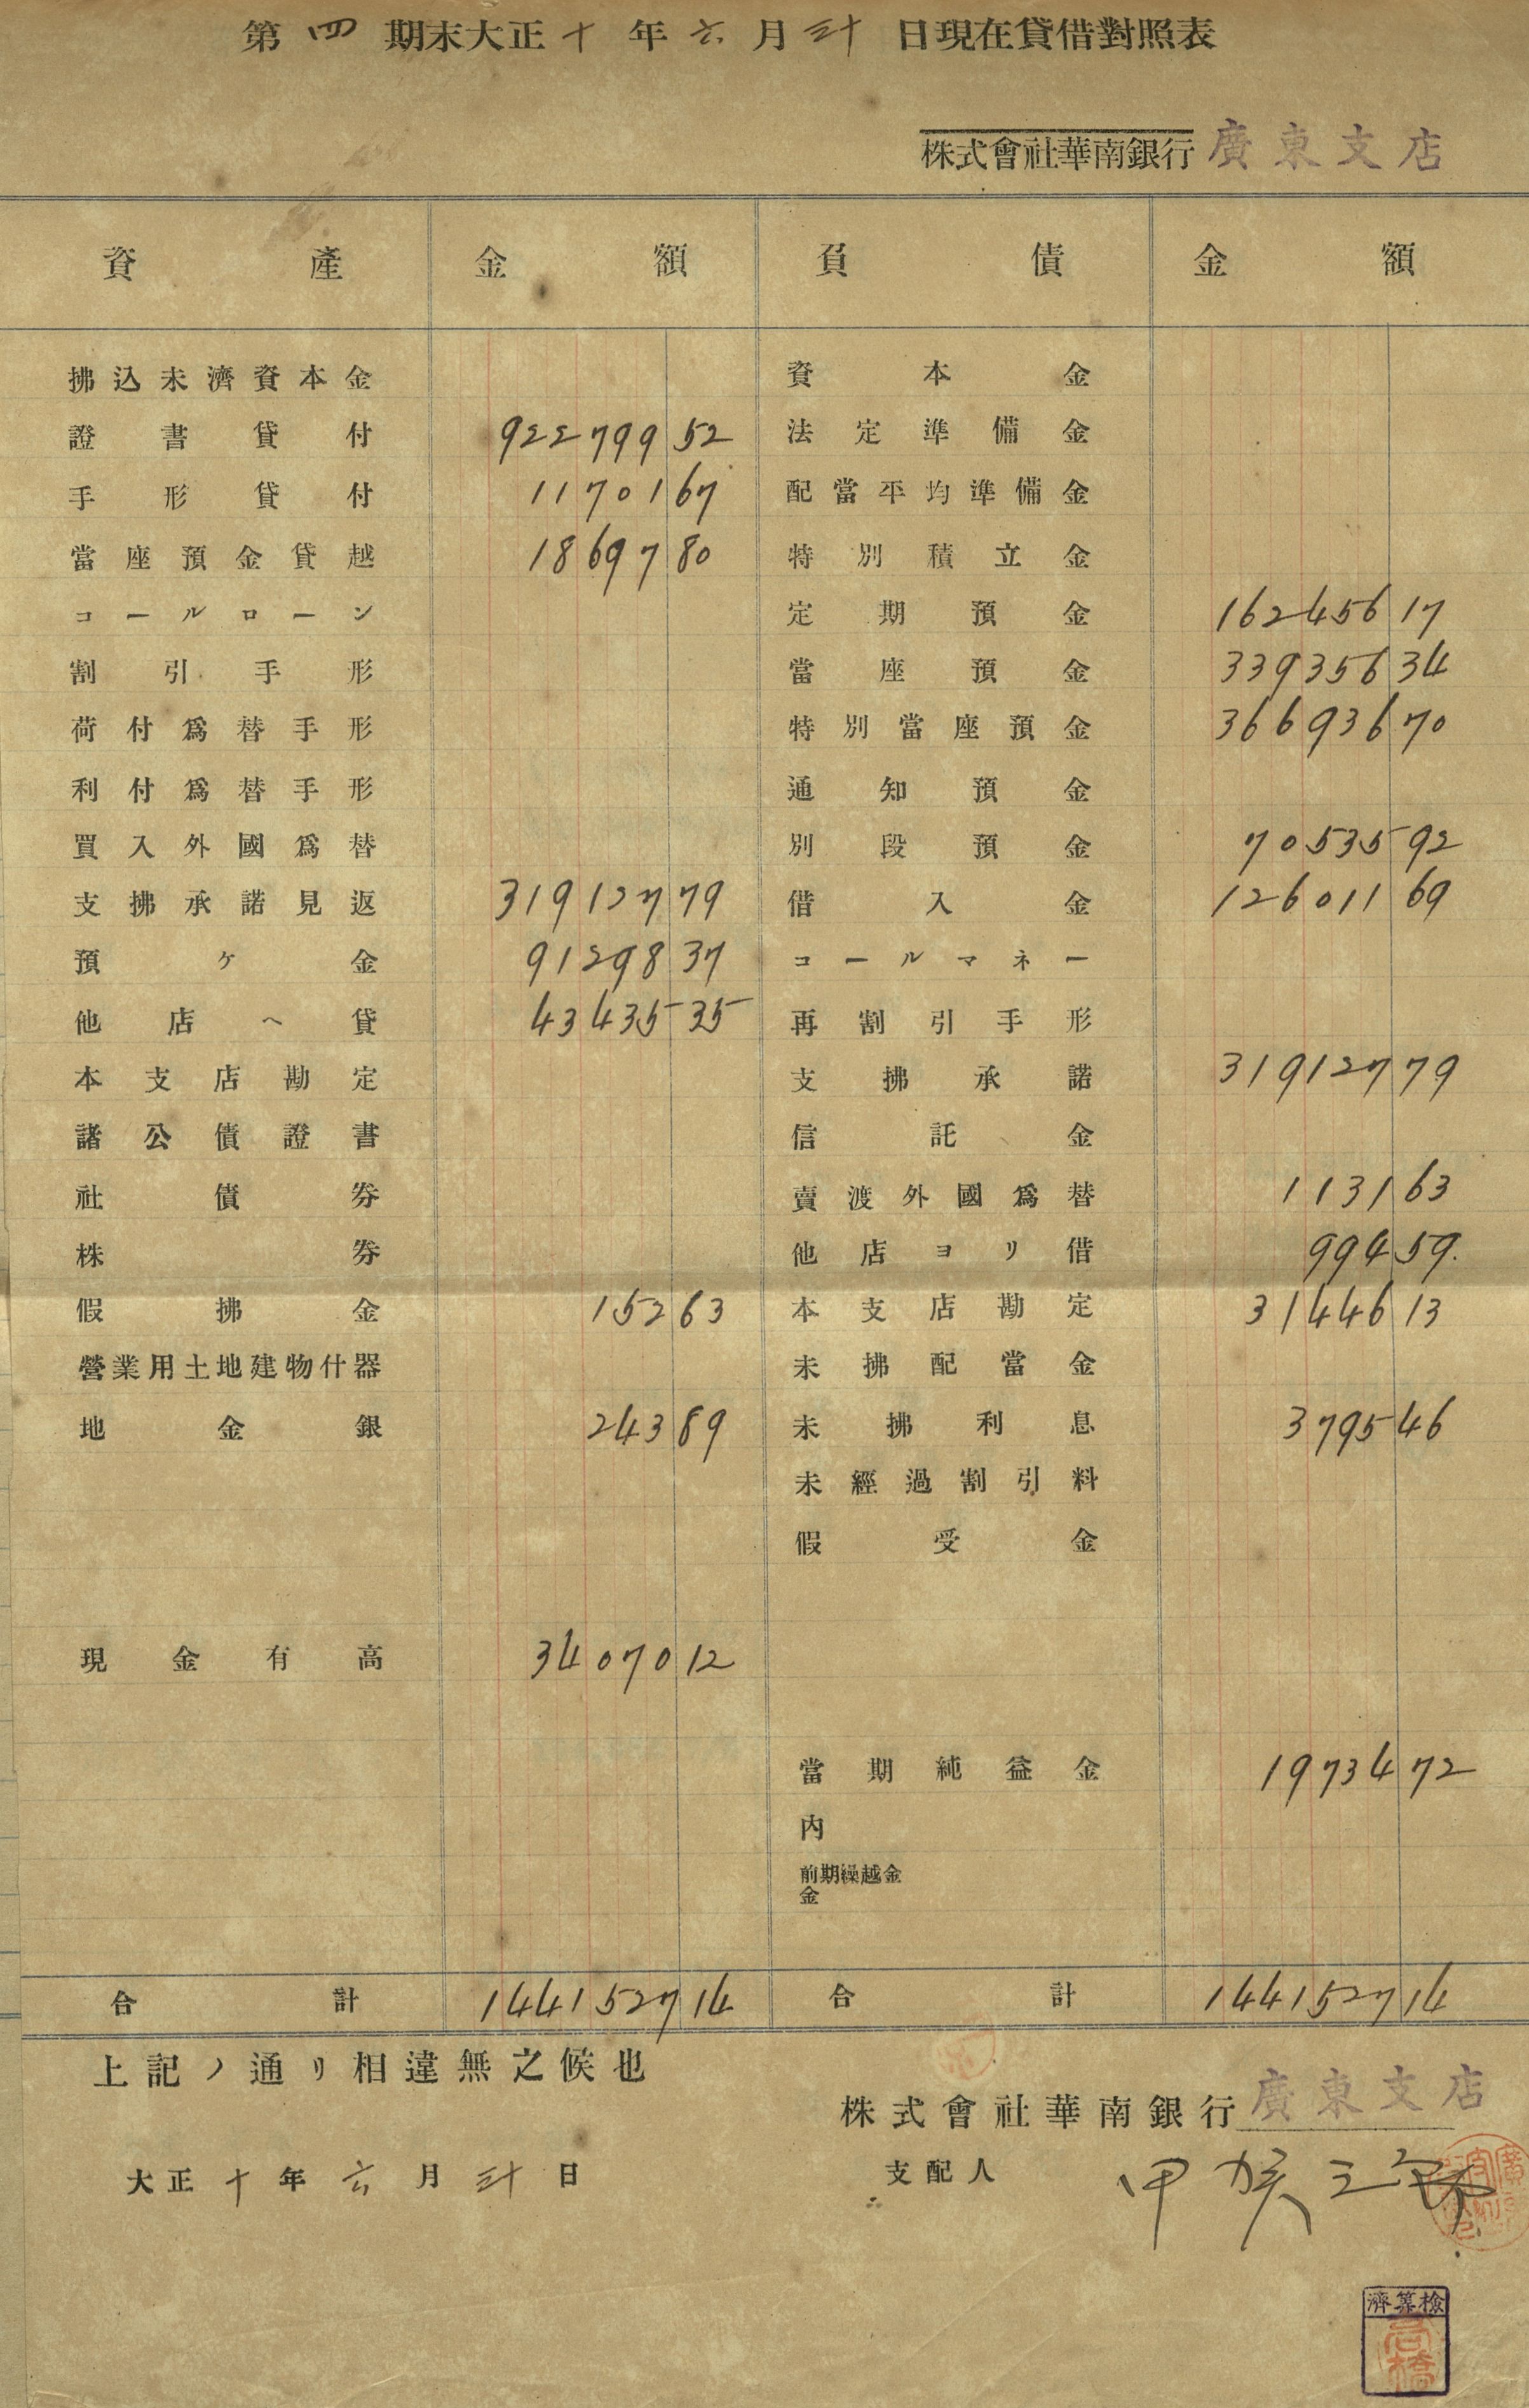 第四期末大正十年六月三十日現在貸借對照表
株式會社華南銀行 廣東支店
資產 金額 負債 金額
拂込未濟資本金 資本金
證書貸付 922799 52 法定準備金
手形貸付 11701 67 配當平均準備金
當座預金貸越 18697 80 特別積立金
コールローン 定期預金 162456 17
割引手形 當座預金 339356 34
荷付爲替手形 特別當座預金 366936 70
利付爲替手形 通知預金
買入外國爲替 別段預金 70535 92
支拂承諾見返 319127 79 借入金 126011 69
預ケ金 91298 37 コールマネー
他店ヘ貸 43435 35 再割引手形
本支店勘定 支拂承諾 319127 79
諸公債證書 信託金
社債券 賣渡外國爲替 1131 63
株券 他店ヨリ借 994 59
假拂金 152 63 本支店勘定 31446 13
營業用土地建物什器 未拂配當金
地金銀 243 89 未拂利息 3795 46
未經過割引料
假受金
現金有高 34070 12
當期純益金 19734 72
內
前期繰越金
金
合計 1441527 14 合計 1441527 14
上記ノ通リ相違無之候也
株式會社華南銀行 廣東支店
大正十年六月三十日 支配人
檢算濟
高橋